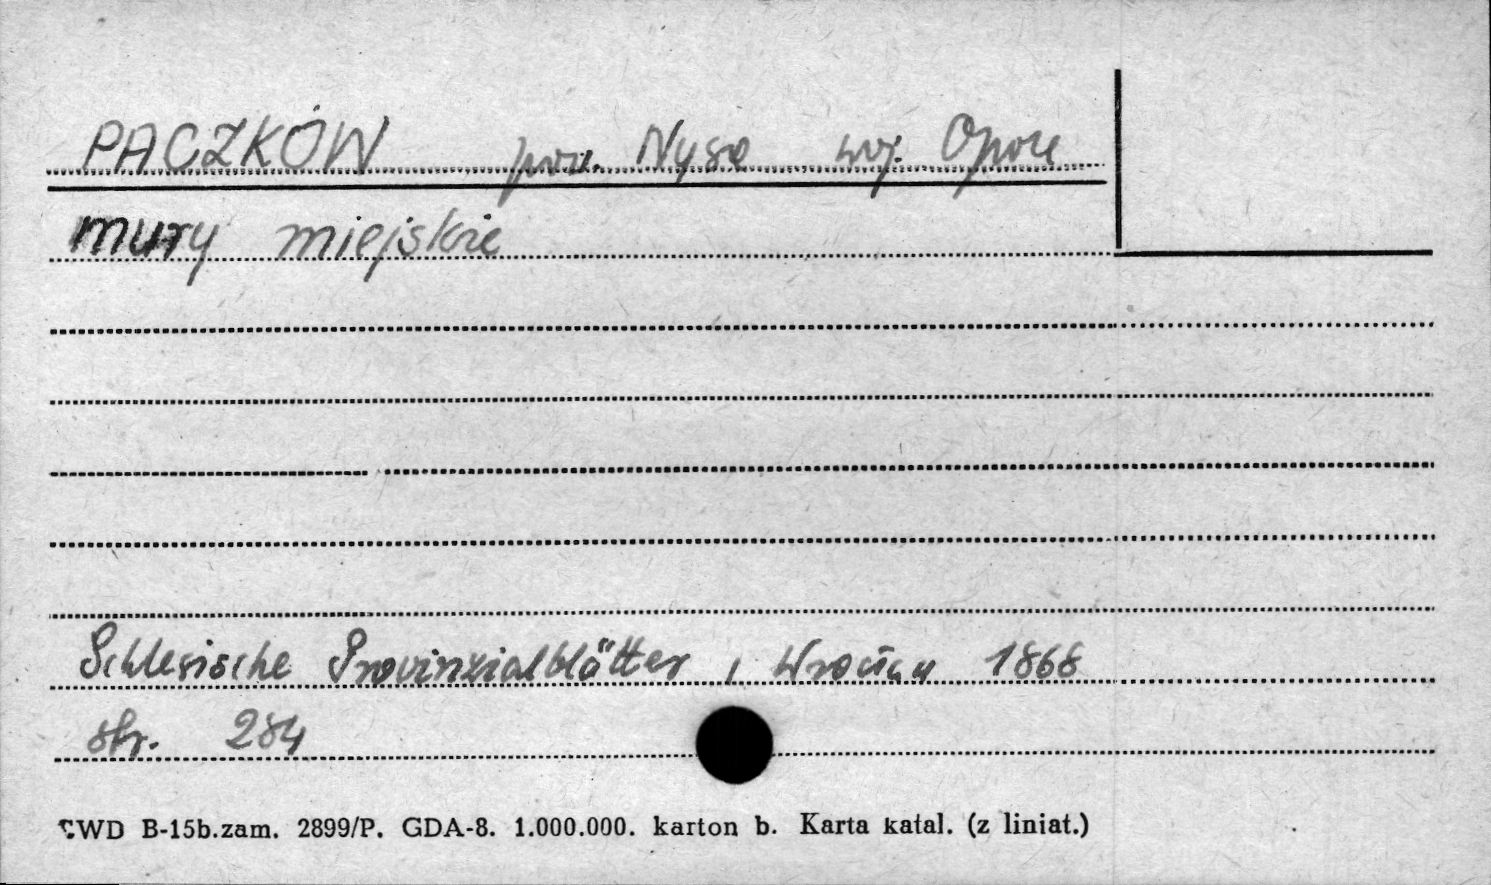 PACZKÓW pow. Nysa woj. Opole
mury miejskie
Schlesische Provinzialblätter, Wrocław 1868
str. 284
CWD B-15b.zam. 2899/P. GDA-8. 1.000.000. karton b. Karta katal. (z liniat.)